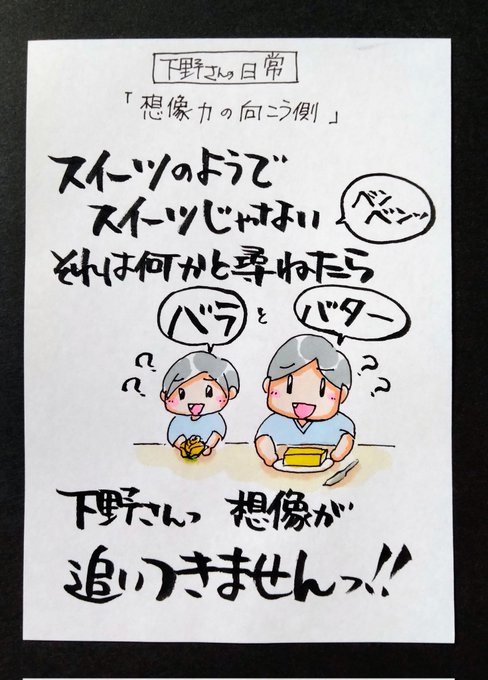 下野さんの日常
「想像力の向こう側」
スイーツのようで
スイーツじゃない
ベン
ベンッ
それは何かと尋ねたら
バラ
と
バター
??
??
下野さんっ 想像が
追いつきませんっ!!